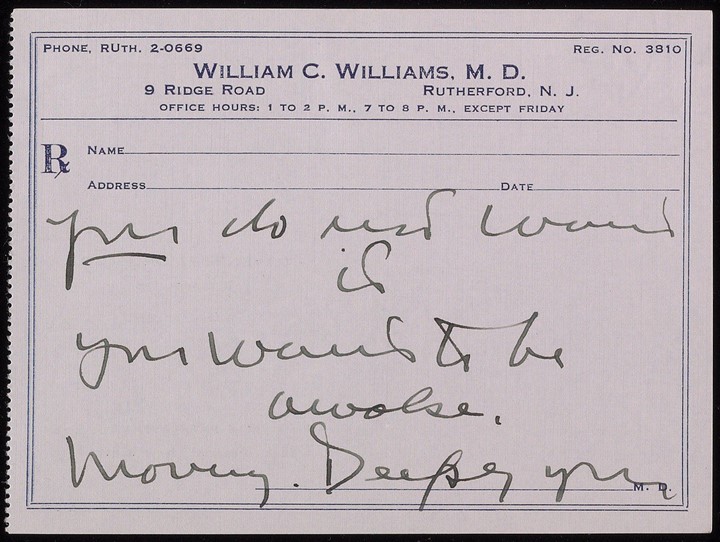 PHONE, RUTH. 2-0669 REG. NO. 3810
WILLIAM C. WILLIAMS, M. D.
9 RIDGE ROAD RUTHERFORD, N. J.
OFFICE HOURS: 1 TO 2 P. M., 7 TO 8 P. M., EXCEPT FRIDAY
℞ NAME
ADDRESS DATE
you do not want
it
you want to be
awake.
Moving. Deeper you
M. D.